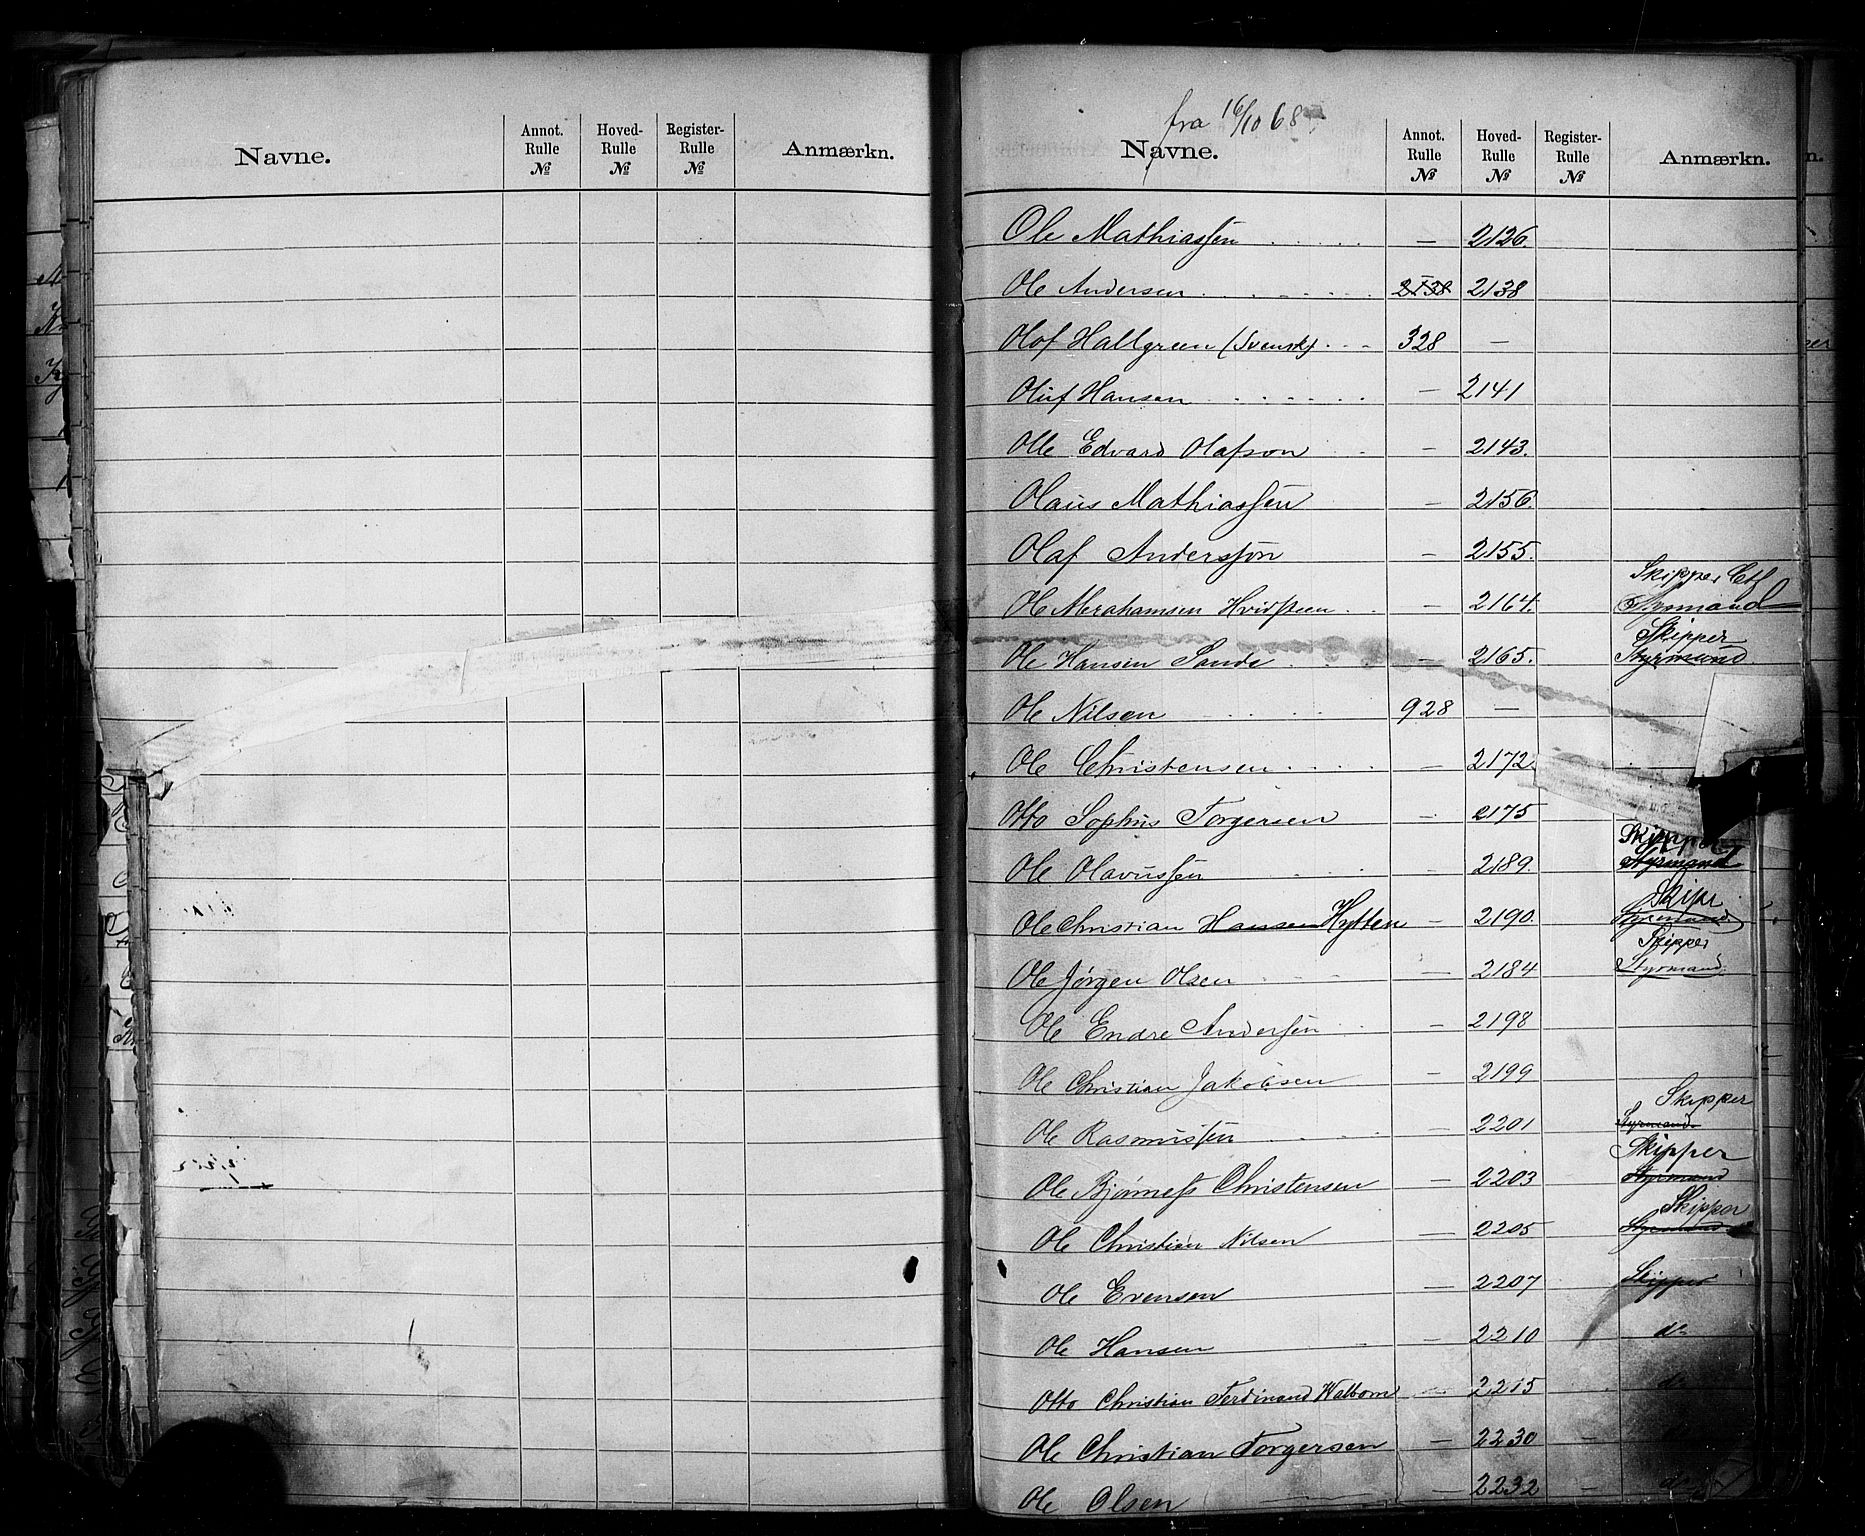 Navne. Annot. Rulle № Hoved-Rulle № Register-Rulle № Anmærkn.
fra 16/10 68
Navne. Annot. Rulle № Hoved-Rulle № Register-Rulle № Anmærkn.
Ole Mathiassen . . . . . — 2126
Ole Andersen . . . . . 2138 2138
Olof Hallgreen (Svensk) . . . 328 —
Oluf Hansen . . . . . — 2141
Olle Edvard Olafson . . — 2143.
Olaus Mathiassen — 2156.
Olaf Anderssøn — 2155.
Skipper Ctf
Ole Abrahamsen Hvidsteen . . — 2164. Styrmand
Skipper
Ole Hansen Sande . . . . — 2165. Styrmand
Ole Nilsen . . . . 928 —
Ole Christensen . . . . — 2172.
Otto Sophus Torgersen — 2175
Skipper
Ole Olavussen — 2189. Styrmand
Skipr
Ole Christian Hansen Hytten — 2190. Styrmand
Skipper
Ole Jørgen Olsen . . . — 2184 Styrmand.
Ole Endre Andersen . . — 2198
Ole Christian Jakobsen — 2199
Skipper
Ole Rasmussen . . . . — 2201 Styrmand
Skipper
Ole Bjørness Christensen — 2203 Styrmand
Skipper
Ole Christian Nilsen — 2205 Styrmand
Ole Evensen — 2207 Skipper
Ole Hansen — 2210 do
Otto Christian Ferdinand Walbom — 2215 do
Ole Christian Torgersen — 2230 —
Ole Olsen — 2232 — do